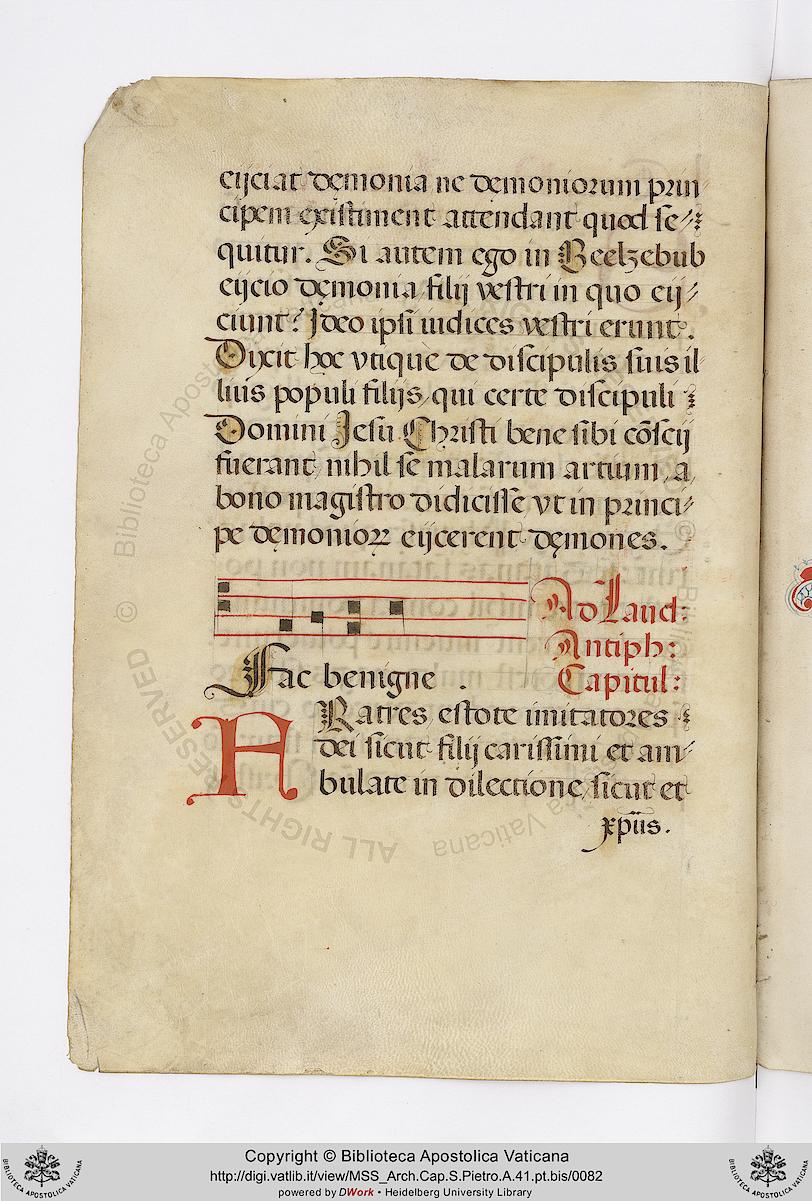 eijciat dęmonia ne dęmoniorum prin
cipem existiment attendant quod se⸗
quitur. Si autem ego in Beelzebub
eijcio dęmonia, filij vestri in quo eij⸗
ciunt? Ideo ipsi iudices vestri erunt.
Dixit hoc vtique de discipulis suis il⸗
lius populi filijs, qui certe discipuli
Domini Jesu Christi bene sibi cõscij
fuerant, nihil se malarum artium, a
bono magistro didicisse vt in princi⸗
pe dęmonioꝝ eijcerent dęmones.
Ad Laud:
Antiph:
Fac benigne.
Capitul:
FRatres, estote imitatores
dei sicut filij carissimi et am⸗
bulate in dilectione, sicut et
xp̄us.
© Biblioteca Apostolica Vaticana
ALL RIGHTS RESERVED
Copyright © Biblioteca Apostolica Vaticana
http://digi.vatlib.it/view/MSS_Arch.Cap.S.Pietro.A.41.pt.bis/0082
powered by DWork • Heidelberg University Library